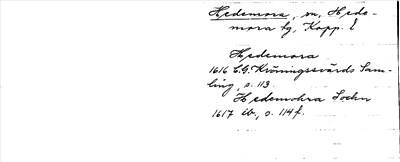 Hedemora, sn, Hede-
mora tg, Kopp. l
Hedemora
1616 C.G. Kröningsvärds Sam-
ling, s. 113.
Hedemohra Sochn
1617 ib., s. 114 f.